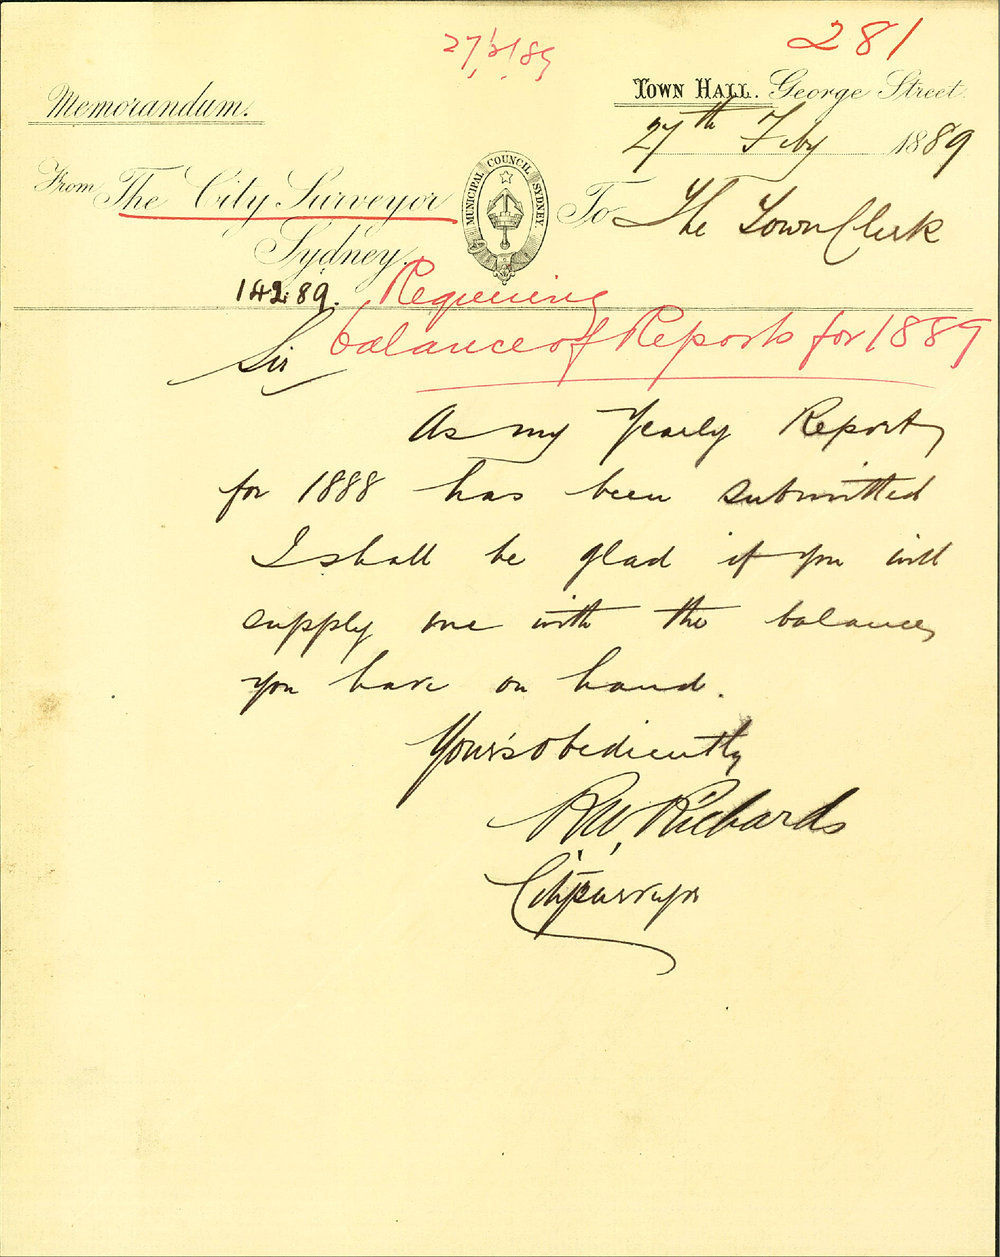 27/2/89
281
Memorandum.
TOWN HALL. George Street.
27th Feby 1889
From The City Surveyor
Sydney.
MUNICIPAL COUNCIL SYDNEY.
To The Town Clerk
142.89. Requiring
balance of Reports for 1889
Sir
As my Yearly Report
for 1888 has been submitted
I shall be glad if you will
supply me with the balance
you have on hand.
Your's obediently
R.W. Richards
City Surveyor